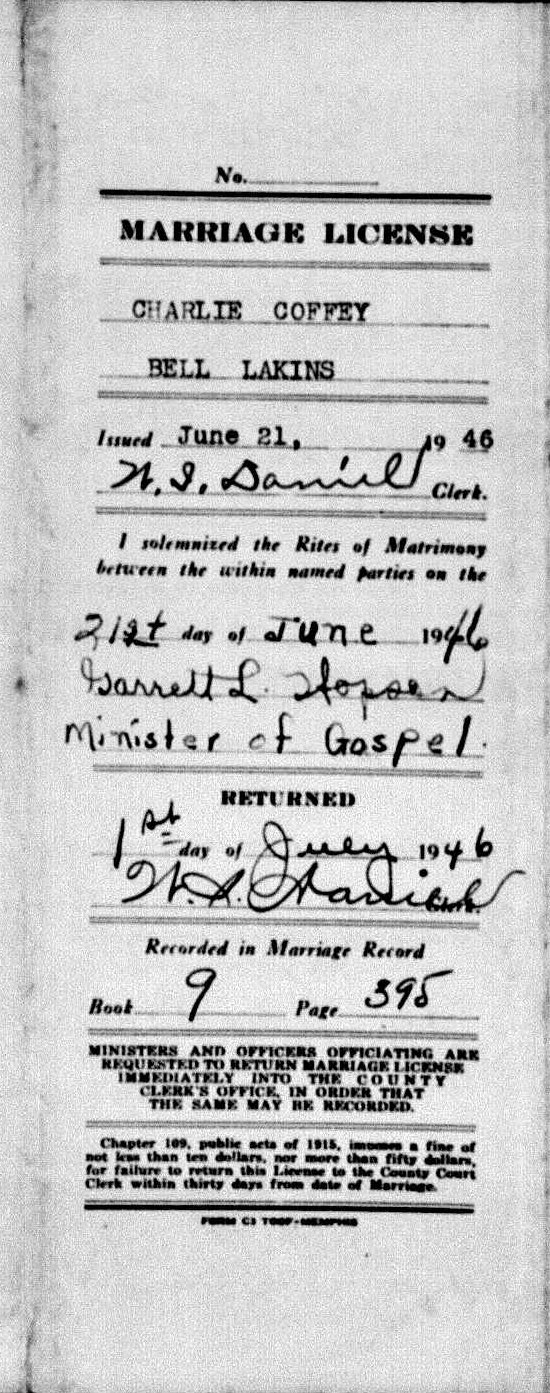 No.
MARRIAGE LICENSE
CHARLIE COFFEY
BELL LAKINS
Issued June 21, 19 46
W. I. Daniel Clerk.
I solemnized the Rites of Matrimony
between the within named parties on the
21st day of June 1946
Garrett L. Hopson
Minister of Gospel.
RETURNED
1st day of July 1946
Clerk.
Recorded in Marriage Record
Book 9 Page 395
MINISTERS AND OFFICERS OFFICIATING ARE
REQUESTED TO RETURN MARRIAGE LICENSE
IMMEDIATELY INTO THE COUNTY
CLERK'S OFFICE, IN ORDER THAT
THE SAME MAY BE RECORDED.
Chapter 109, public acts of 1915, imposes a fine of
not less than ten dollars, nor more than fifty dollars,
for failure to return this License to the County Court
Clerk within thirty days from date of Marriage.
FORM C3 TOOF-MEMPHIS